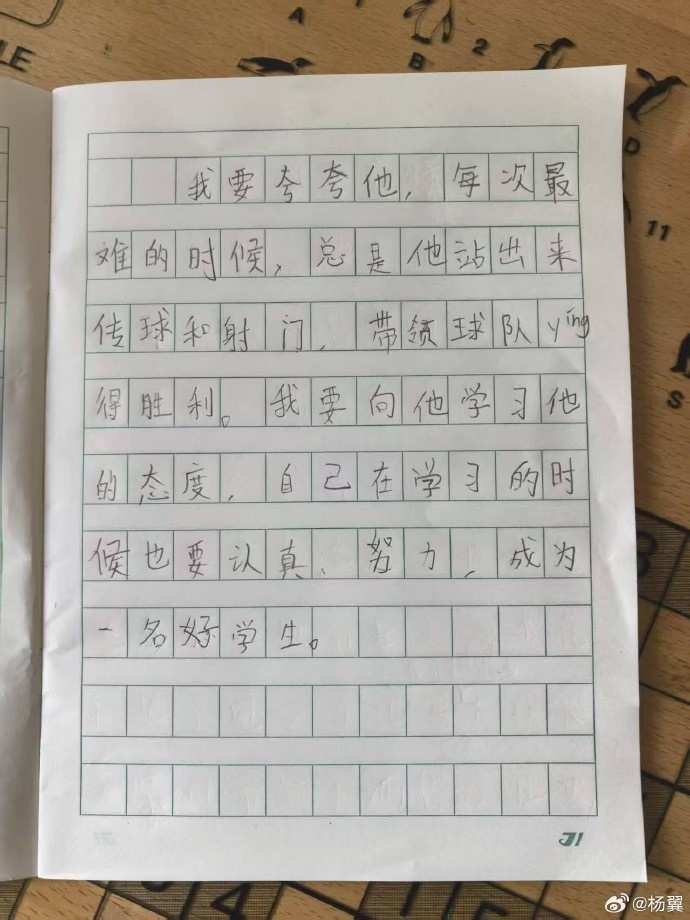 LE
A
B
2
D
11
S
我要夸夸他，每次最
难的时候，总是他站出来
传球和射门，带领球队yíng
得胜利。我要向他学习他
的态度，自己在学习的时
候也要认真、努力，成为
一名好学生。
31
@杨翼